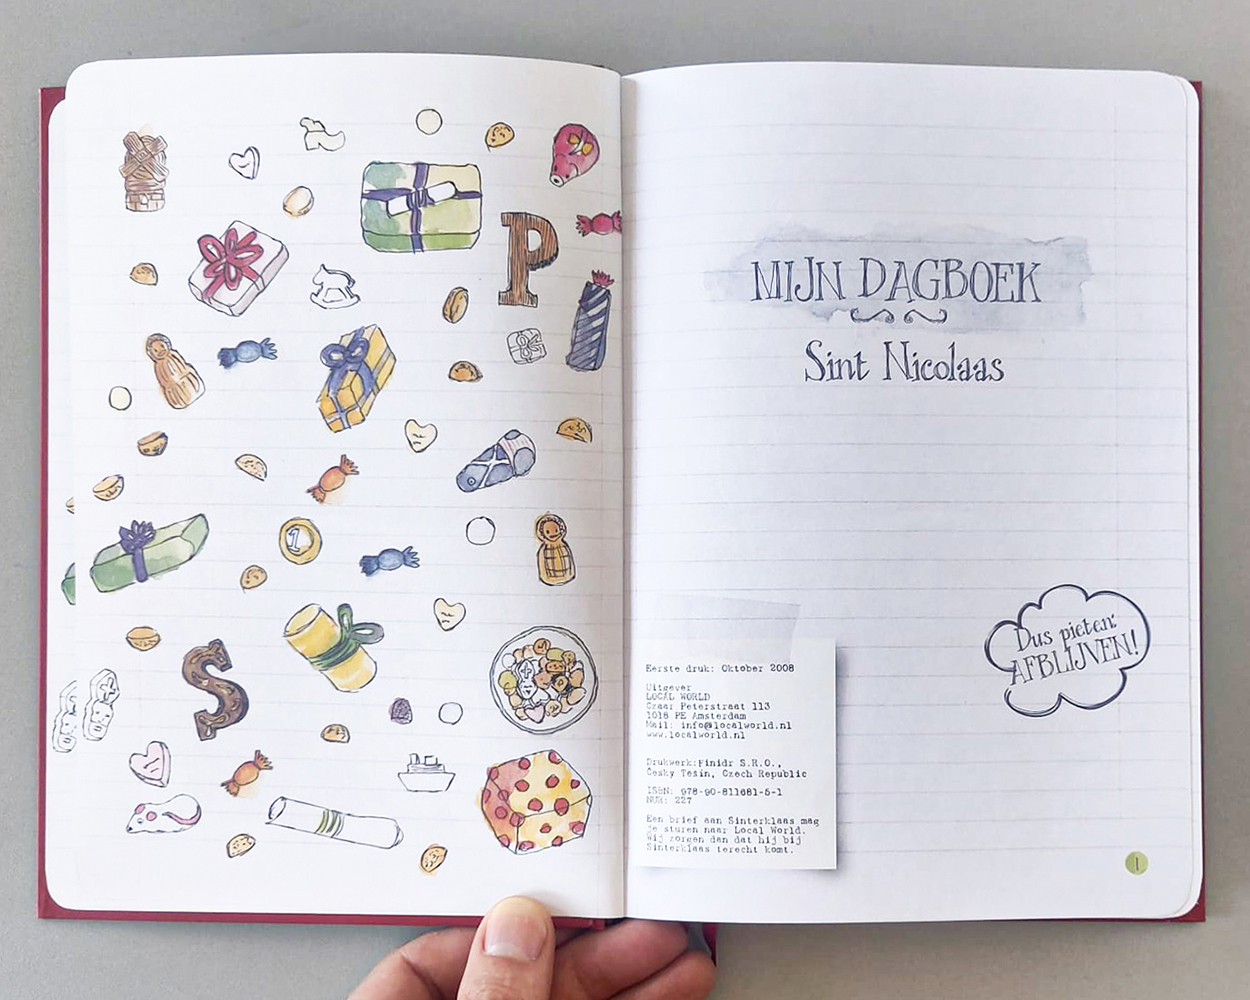 P
1
S
MIJN DAGBOEK
Sint Nicolaas
Dus pieten:
AFBLIJVEN!
Eerste druk: Oktober 2008
Uitgever
LOCAL WORLD
Czaar Peterstraat 113
1018 PE Amsterdam
Mail: info@localworld.nl
www.localworld.nl
Drukwerk:Finidr S.R.O.,
Česky Tešin, Czech Republic
ISBN: 978-90-811681-5-1
NUR: 227
Een brief aan Sinterklaas mag
je sturen naar Local World.
Wij zorgen dan dat hij bij
Sinterklaas terecht komt.
1